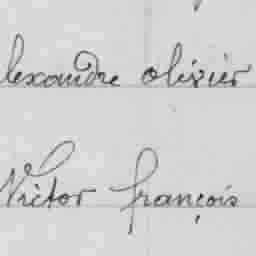 lexandre olivier
Victor françois